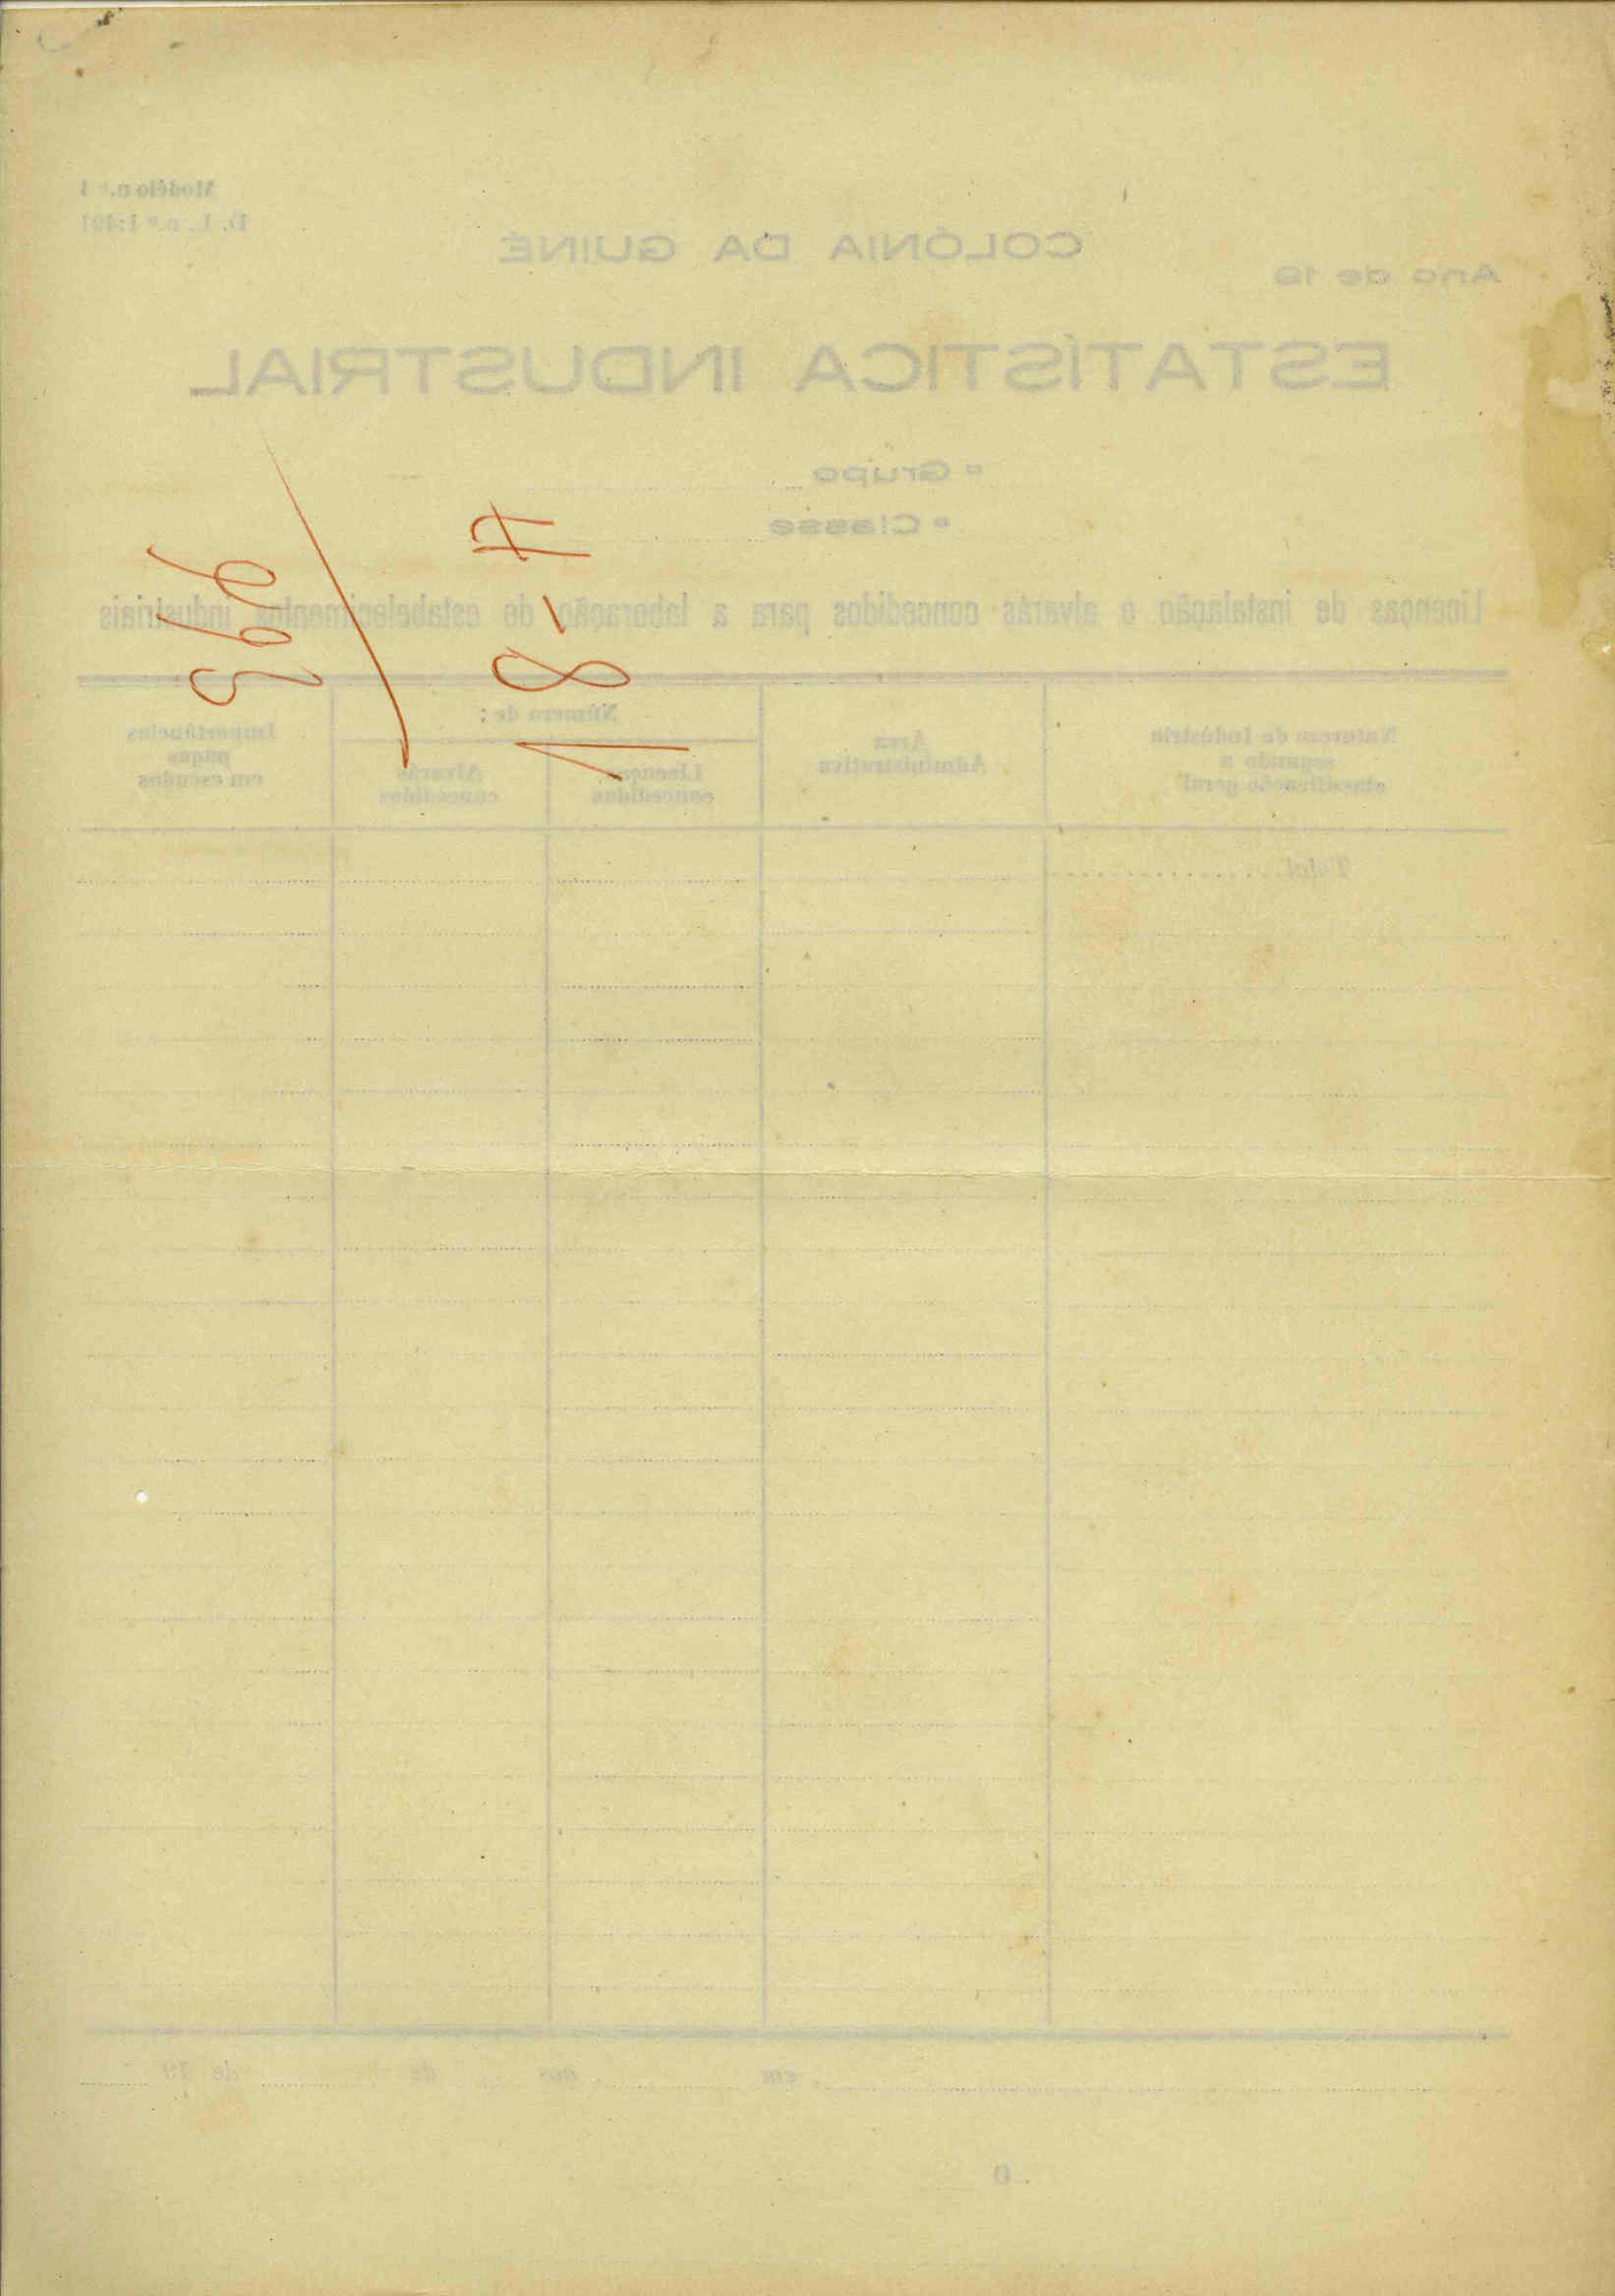 Modêlo n.º 1
D. L. n.º 1:491
COLÓNIA DA GUINÉ
Ano de 19
ESTATÍSTICA INDUSTRIAL
º Grupo
ª Classe
Licenças de instalação e alvarás concedidos para a laboração de estabelecimentos industriais
Natureza da Indústria
segundo a
classificação geral
Área
Administrativa
Número de:
Licenças
concedidas
Alvarás
concedidos
Importâncias
pagas
em escudos
Total
, em , aos de de 19
O